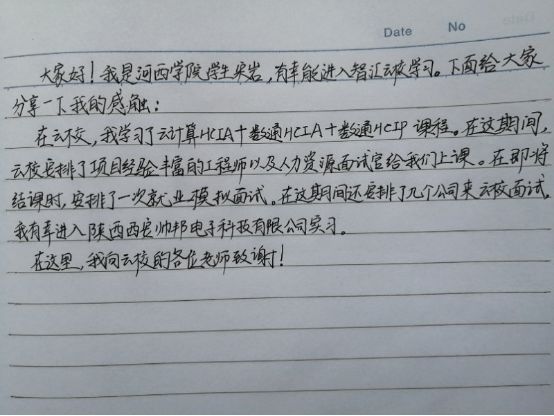 Date No
大家好！我是河西学院学生宋岩，有幸能进入智汇云校学习。下面给大家
分享一下我的感触：
在云校，我学习了云计算HCIA+数通HCIA+数通HCIP课程。在这期间，
云校安排了项目经验丰富的工程师以及人力资源面试官给我们上课。在即将
结课时，安排了一次就业模拟面试。在这期间还安排了几个公司来云校面试。
我有幸进入陕西西安帅邦电子科技有限公司实习。
在这里，我向云校的各位老师致谢！